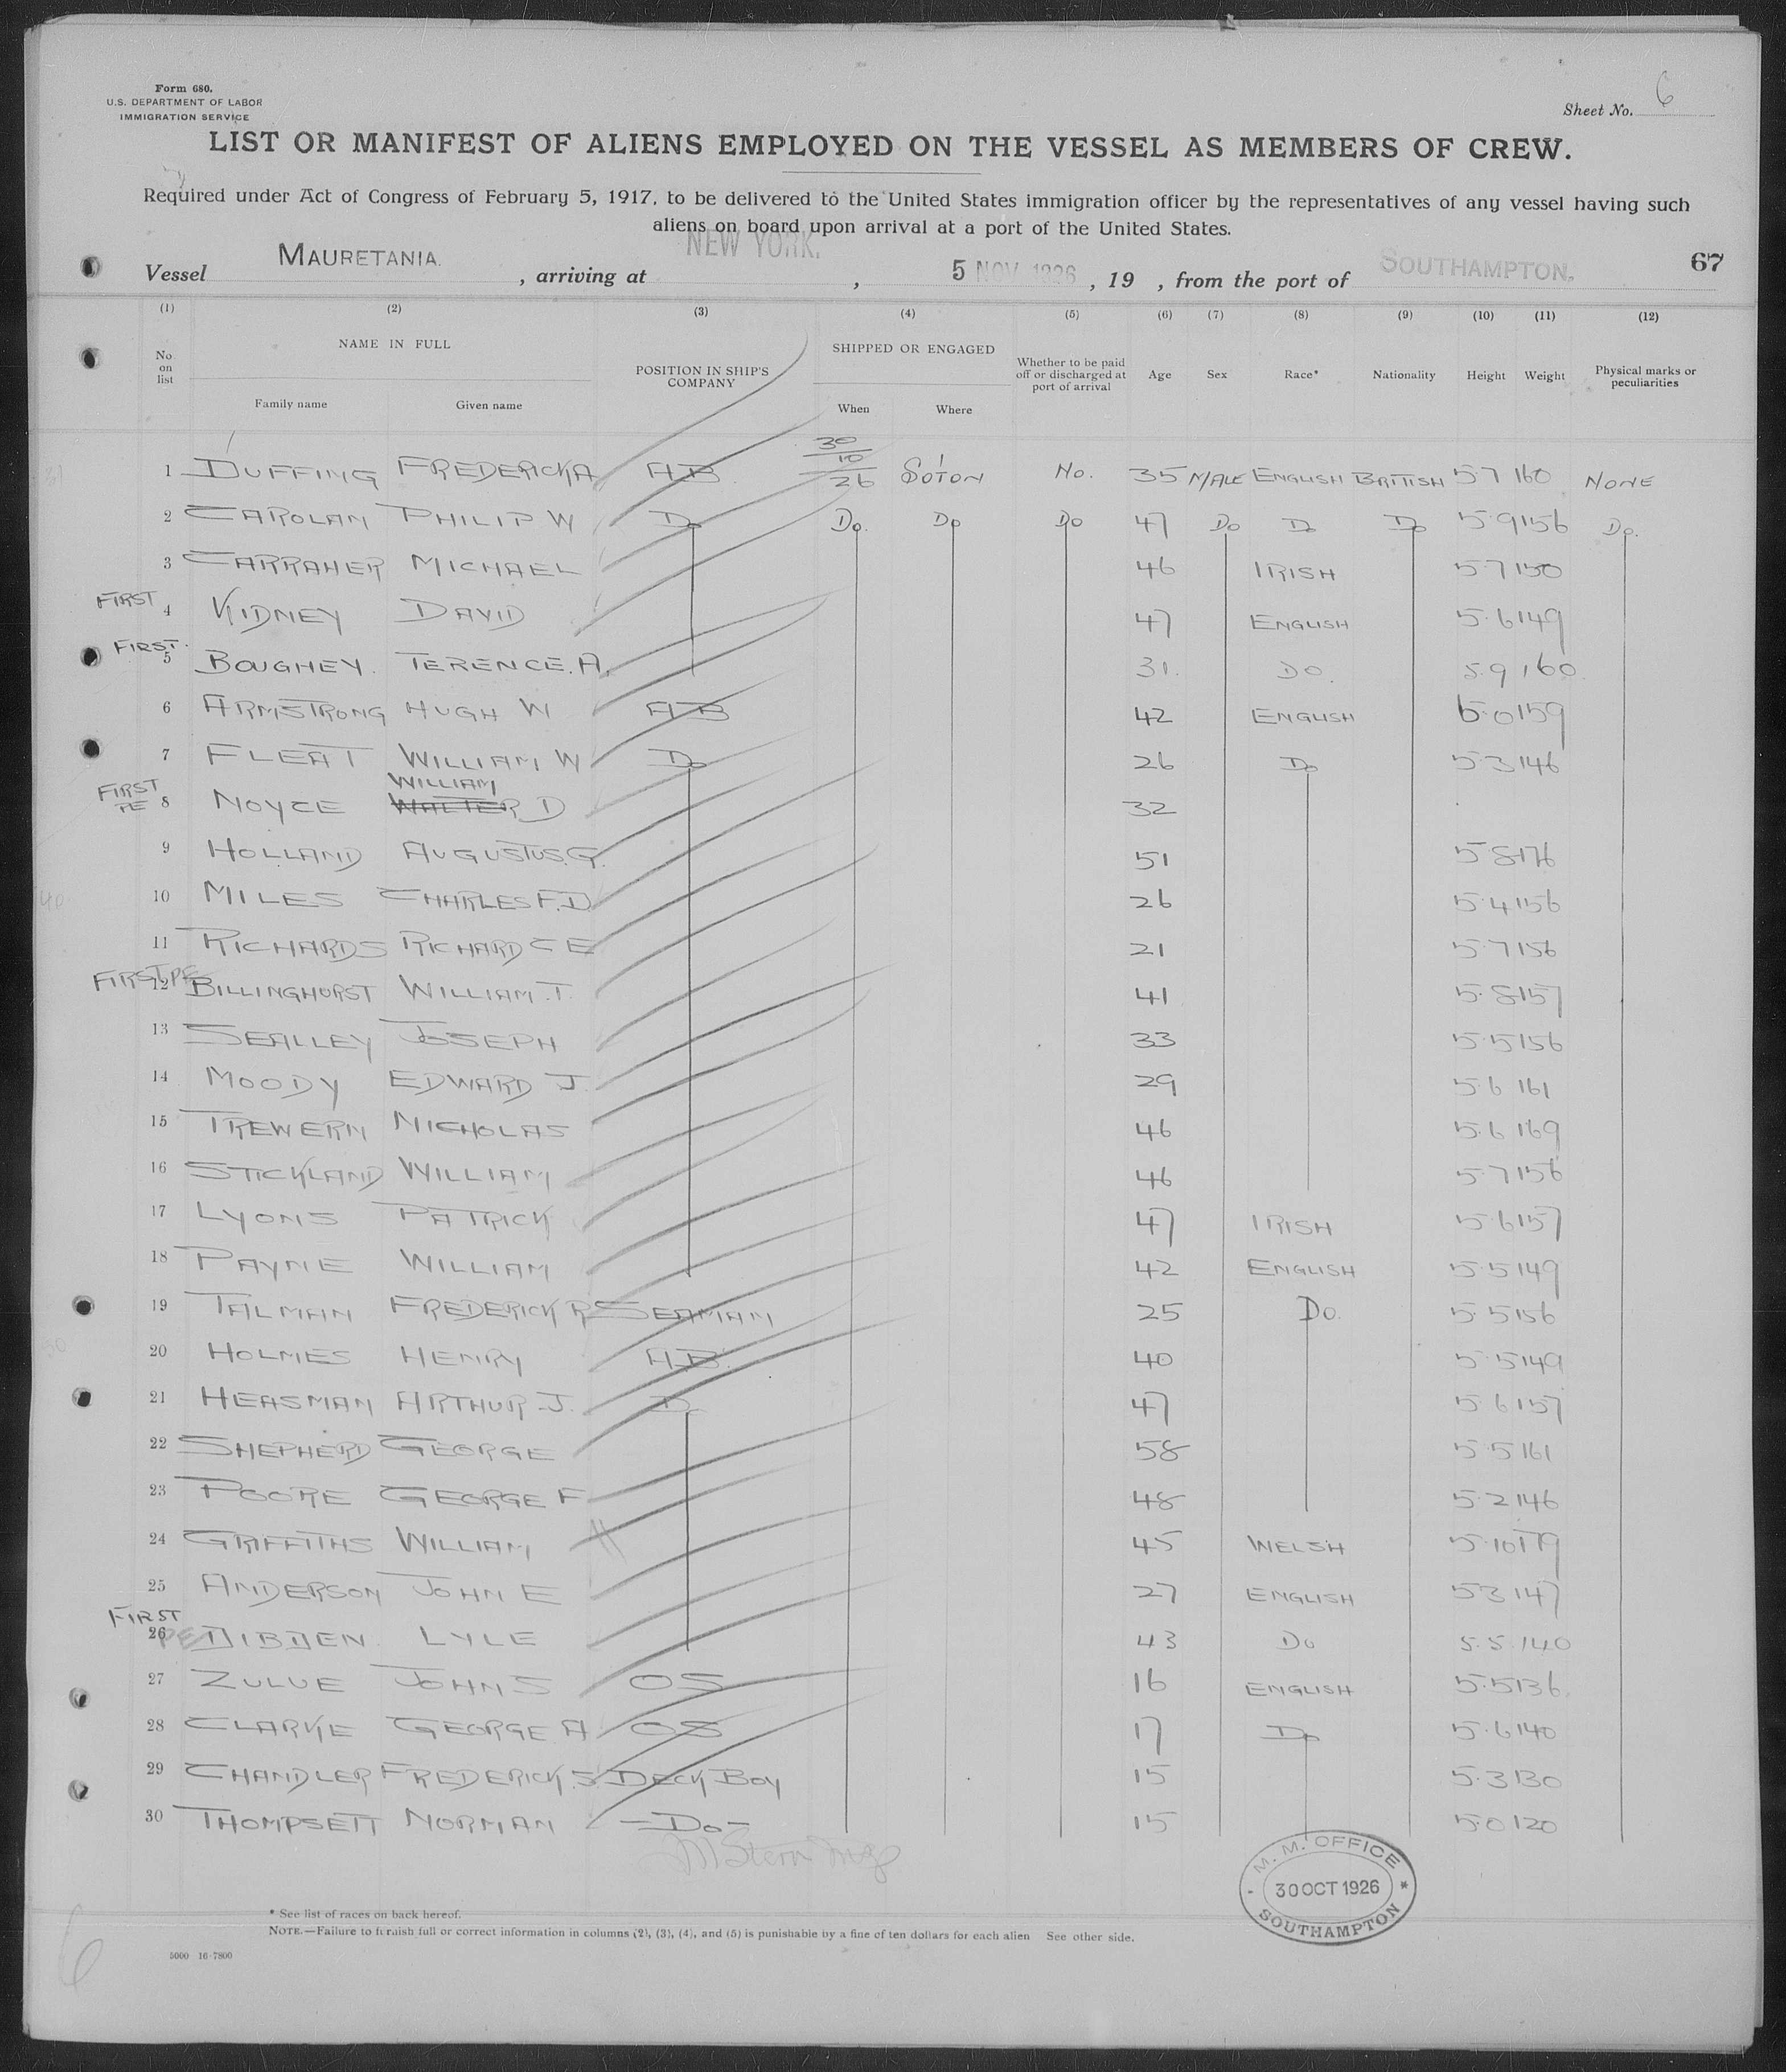 Form 680.
U.S. DEPARTMENT OF LABOR
IMMIGRATION SERVICE
Sheet No. 6
LIST OR MANIFEST OF ALIENS EMPLOYED ON THE VESSEL AS MEMBERS OF CREW.
Required under Act of Congress of February 5, 1917, to be delivered to the United States immigration officer by the representatives of any vessel having such
aliens on board upon arrival at a port of the United States.
Vessel MAURETANIA. , arriving at NEW YORK. , 5 NOV 1926 , 19 , from the port of SOUTHAMPTON. 67
(1) (2) (3) (4) (5) (6) (7) (8) (9) (10) (11) (12)
No on list NAME IN FULL Family name Given name POSITION IN SHIP'S COMPANY SHIPPED OR ENGAGED When Where Whether to be paid off or discharged at port of arrival Age Sex Race* Nationality Height Weight Physical marks or peculiarities
1 DUFFING FREDERICK A AB 30/10/26 S'OTON No. 35 MALE ENGLISH BRITISH 5.7 160 NONE
2 CAROLAN PHILIP W Do Do. Do Do 47 Do Do Do 5.9 156 Do.
3 CARRAHER MICHAEL 46 IRISH 5.7 150
FIRST 4 KIDNEY DAVID 47 ENGLISH 5.6 149
FIRST. 5 BOUGHEY. TERENCE. A. 31. DO. 5.9 160
6 ARMSTRONG HUGH W AB 42 ENGLISH 6.0 159
7 FLEAT WILLIAM W Do 26 Do 5.3 146
WILLIAM
FIRST PE 8 NOYCE WALTER D 32
9 HOLLAND AUGUSTUS. G. 51 5.8 176
10 MILES CHARLES F. D 26 5.4 156
11 RICHARDS RICHARD C E 21 5.7 156
FIRST PE 12 BILLINGHURST WILLIAM. T. 41 5.8 157
13 SEALLEY JOSEPH 33 5.5 156
14 MOODY EDWARD J. 29 5.6 161
15 TREWERN NICHOLAS 46 5.6 169
16 STICKLAND WILLIAM 46 5.7 156
17 LYONS PATRICK 47 IRISH 5.6 157
18 PAYNE WILLIAM 42 ENGLISH 5.5 149
19 TALMAN FREDERICK R SEAMAN 25 Do. 5.5 156
20 HOLMES HENRY AB. 40 5.5 149
21 HEASMAN ARTHUR J. Do 47 5.6 157
22 SHEPHERD GEORGE 58 5.5 161
23 POORE GEORGE F 48 5.2 146
24 GRIFFITHS WILLIAM 45 WELSH 5.10 179
25 ANDERSON JOHN E 27 ENGLISH 5.3 147
FIRST PE 26 DIBDEN. LYLE 43 Do 5.5. 140
27 ZULUE JOHN S OS 16 ENGLISH 5.5 136
28 CLARKE GEORGE A OS 17 Do 5.6 140
29 CHANDLER FREDERICK. S DECK BOY 15 5.3 130
30 THOMPSETT NORMAN -Do- 15 5.0 120
M. M. OFFICE
30 OCT 1926
SOUTHAMPTON
* See list of races on back hereof.
NOTE.—Failure to furnish full or correct information in columns (2), (3), (4), and (5) is punishable by a fine of ten dollars for each alien See other side.
5000 16-7800
6